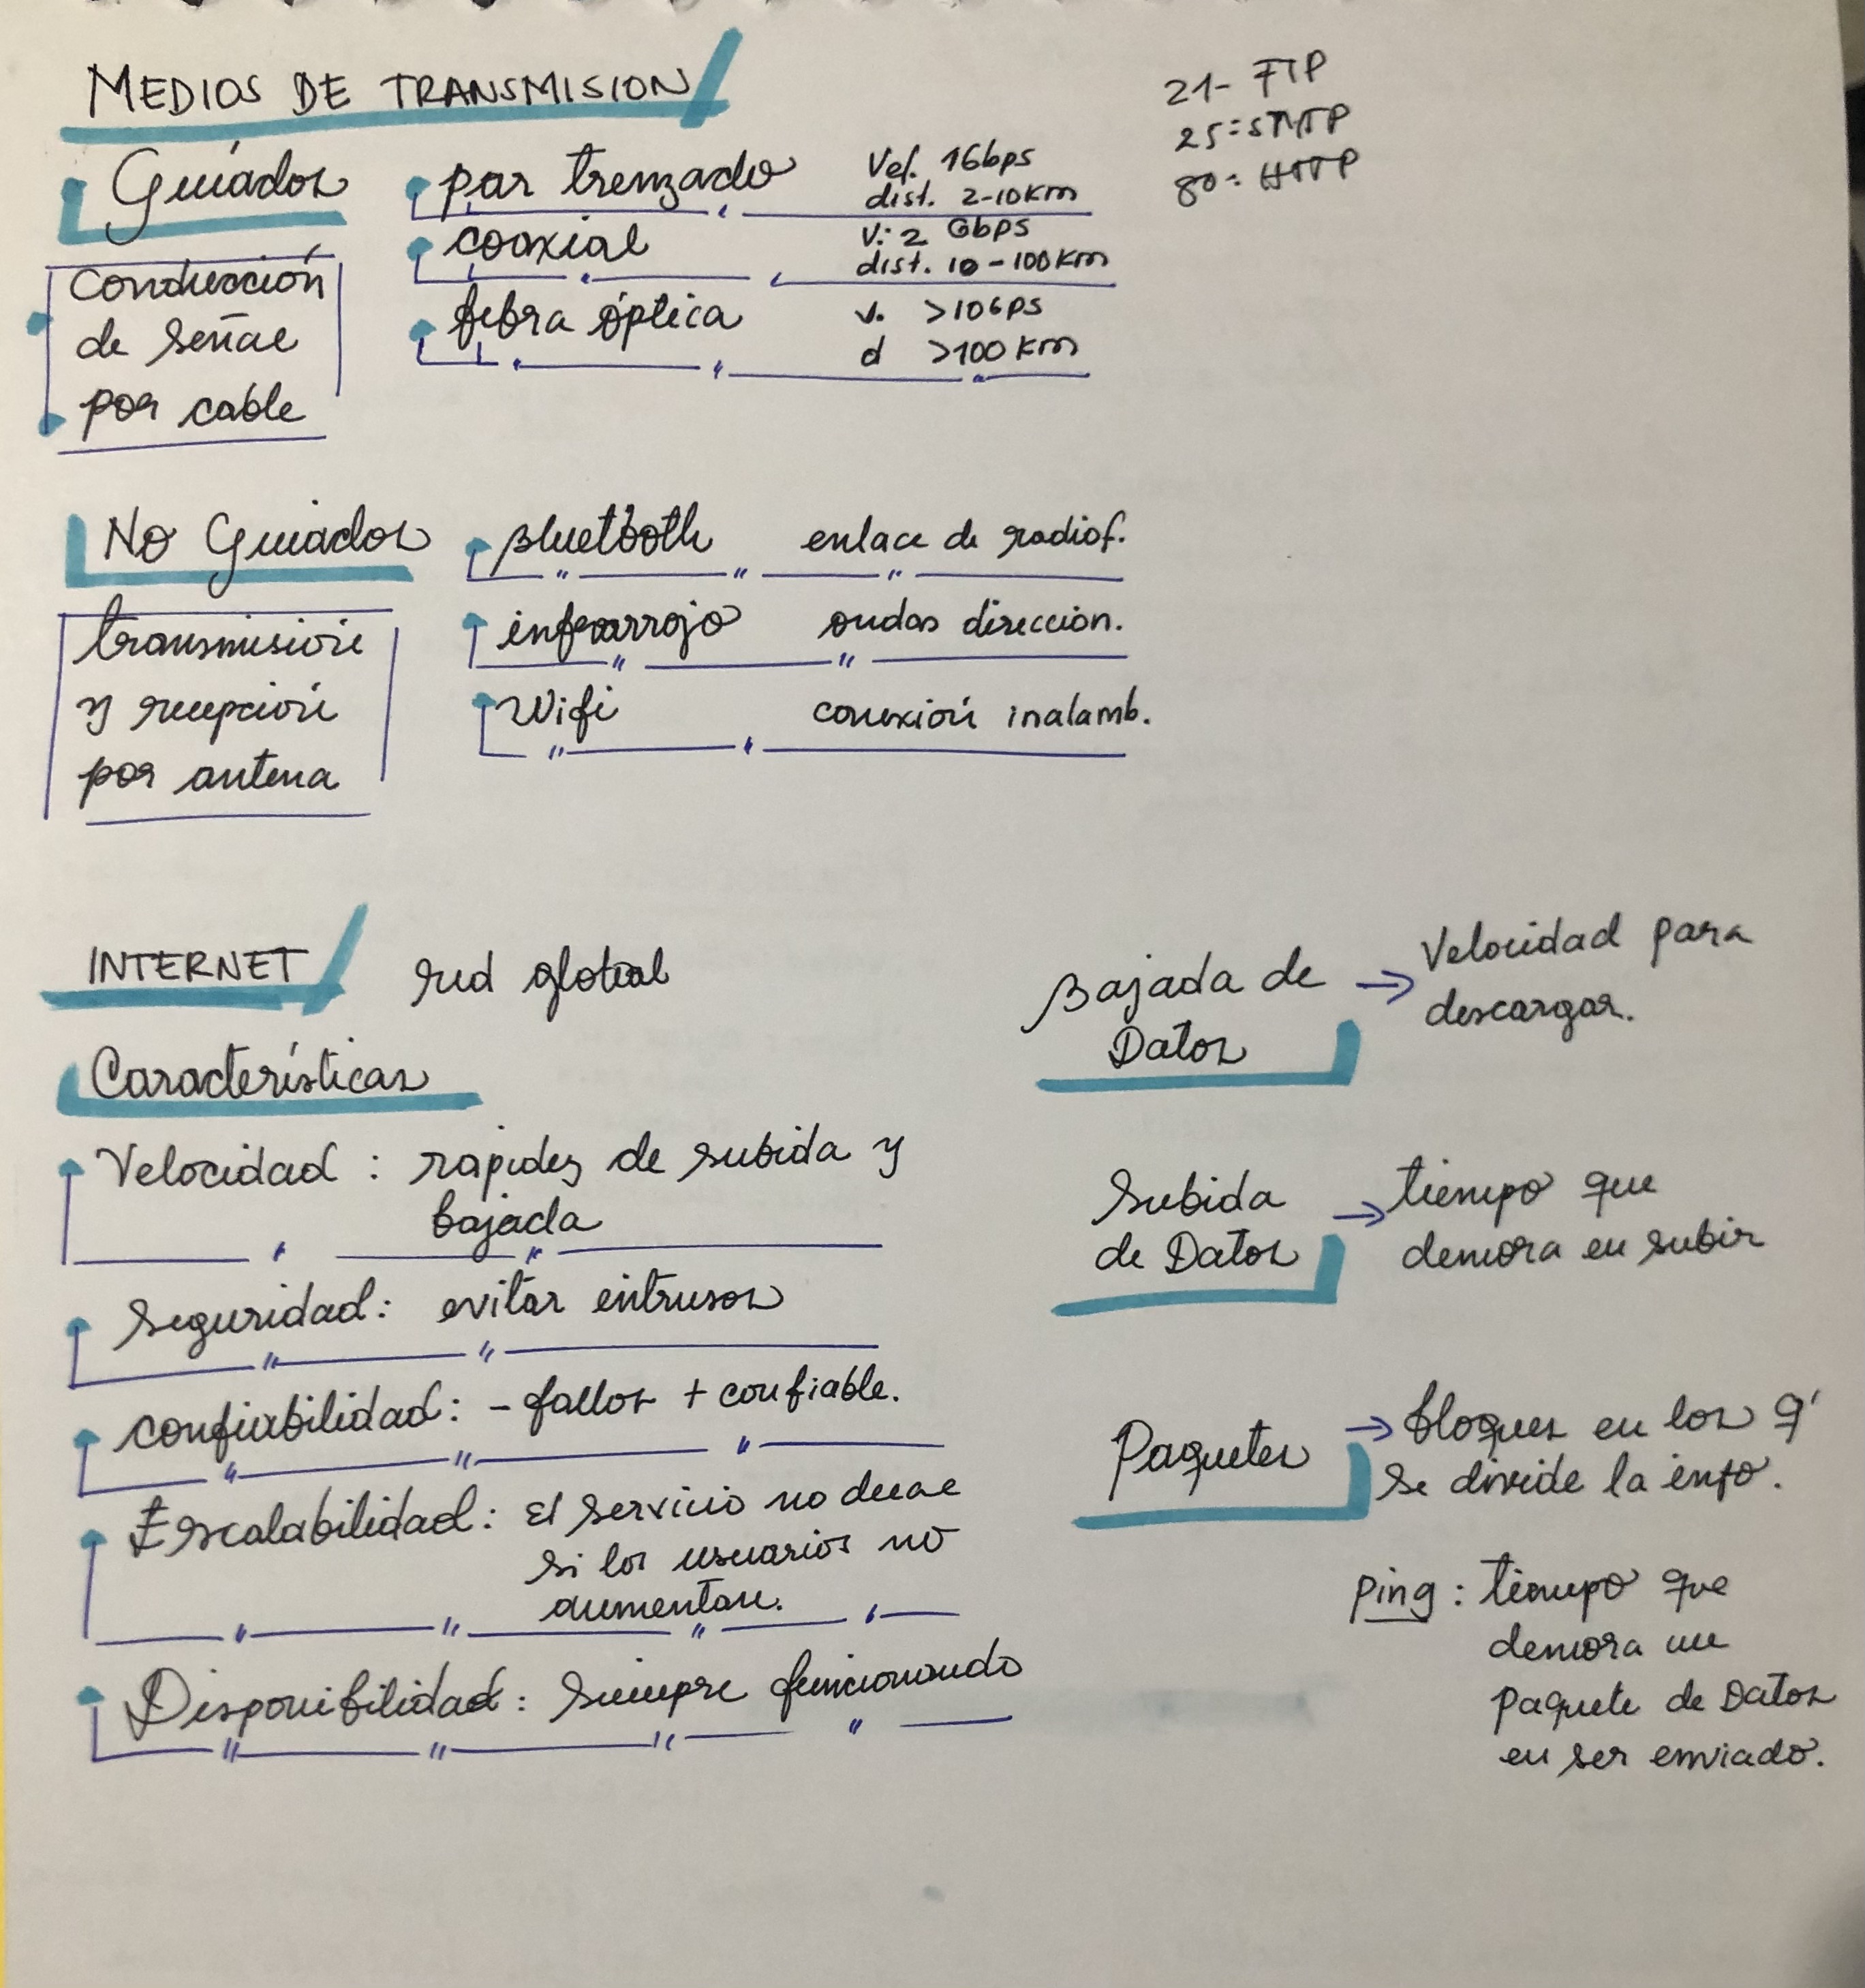 MEDIOS DE TRANSMISION
21- FTP
25=SMTP
80= HTTP
Guiados
Conducción
de señal
por cable
par trenzado
Vel. 1Gbps
dist. 2-10Km
coaxial
V: 2 Gbps
dist. 10-100Km
fibra óptica
v. >10Gps
d >100 Km
No Guiados
transmisión
y recepción
por antena
Bluetooth enlace de radiof.
infrarrojo ondas direccion.
Wifi conexión inalamb.
INTERNET red global
Características
Velocidad: rapidez de subida y
bajada
Seguridad: evitar intrusos
confiabilidad: - fallos + confiable.
Escalabilidad: El servicio no decae
si los usuarios no
aumentan.
Disponibilidad: Siempre funcionando
Bajada de
Datos
→ Velocidad para
descargar.
Subida
de Datos
→ tiempo que
demora en subir
Paquetes
→ bloques en los q'
se divide la info.
Ping: tiempo que
demora un
paquete de Datos
en ser enviado.